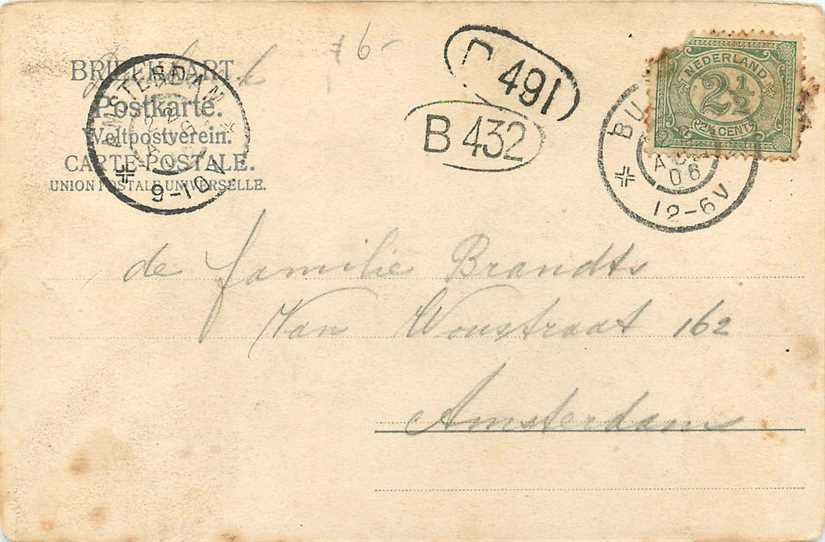 BRIEFKAART.
Postkarte.
Weltpostverein.
CARTE-POSTALE.
UNION POSTALE UNIVERSELLE.
AMSTERDAM
9-10V
6-
491
B 432
NEDERLAND
2½
2½ CENT
BU
06
12-6V
de familie Brandts
Van Woustraat 162
Amsterdam